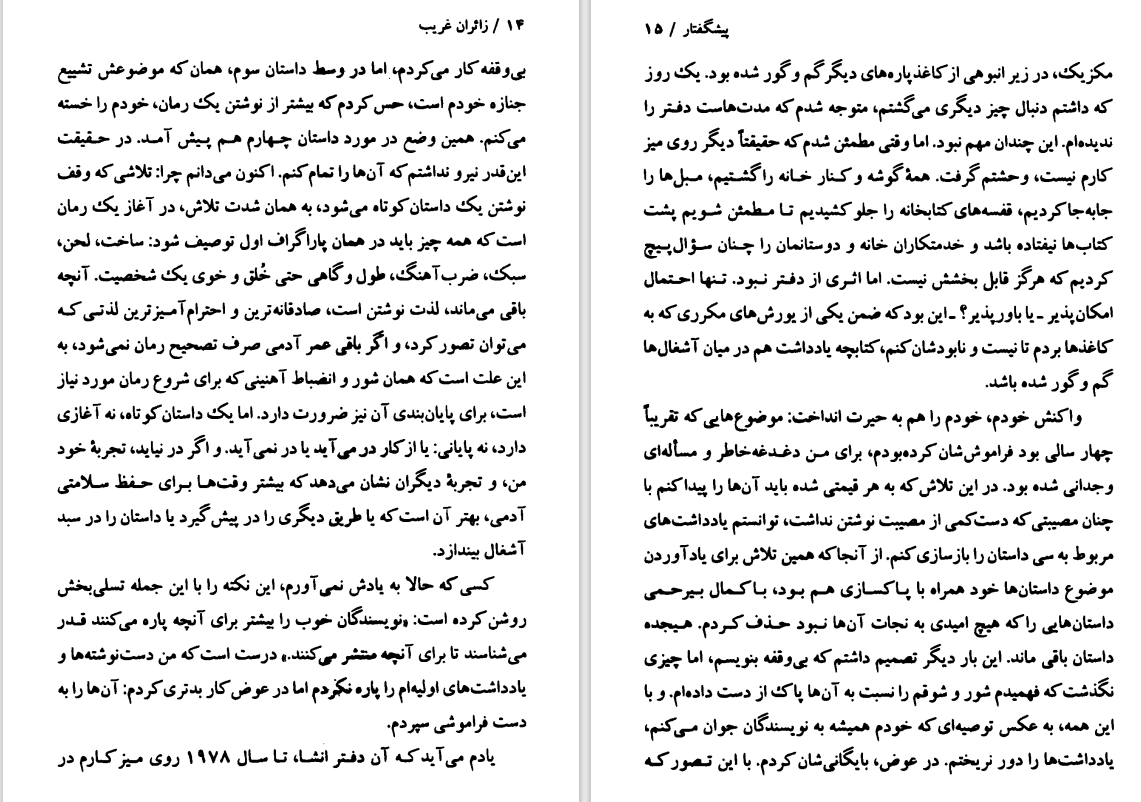 ۱۴ / زائران غریب
بی‌وقفه کار می‌کردم، اما در وسط داستان سوم، همان که موضوعش تشییع
جنازه خودم است، حس کردم که بیشتر از نوشتن یک رمان، خودم را خسته
می‌کنم. همین وضع در مورد داستان چهارم هم پیش آمد. در حقیقت
این‌قدر نیرو نداشتم که آن‌ها را تمام کنم. اکنون می‌دانم چرا: تلاشی که وقف
نوشتن یک داستان کوتاه می‌شود، به همان شدت تلاش، در آغاز یک رمان
است که همه چیز باید در همان پاراگراف اول توصیف شود: ساخت، لحن،
سبک، ضرب‌آهنگ، طول و گاهی حتی خُلق و خوی یک شخصیت. آنچه
باقی می‌ماند، لذت نوشتن است، صادقانه‌ترین و احترام‌آمیزترین لذتی که
می‌توان تصور کرد، و اگر باقی عمر آدمی صرف تصحیح رمان نمی‌شود، به
این علت است که همان شور و انضباط آهنینی که برای شروع رمان مورد نیاز
است، برای پایان‌بندی آن نیز ضرورت دارد. اما یک داستان کوتاه، نه آغازی
دارد، نه پایانی: یا از کار در می‌آید یا در نمی‌آید. و اگر در نیاید، تجربهٔ خود
من، و تجربهٔ دیگران نشان می‌دهد که بیشتر وقت‌ها برای حفظ سلامتی
آدمی، بهتر آن است که یا طریق دیگری را در پیش گیرد یا داستان را در سبد
آشغال بیندازد.
کسی که حالا به یادش نمی‌آورم، این نکته را با این جمله تسلی‌بخش
روشن کرده است: «نویسندگان خوب را بیشتر برای آنچه پاره می‌کنند قدر
می‌شناسند تا برای آنچه منتشر می‌کنند.» درست است که من دست‌نوشته‌ها و
یادداشت‌های اولیه‌ام را پاره نکردم اما در عوض کار بدتری کردم: آن‌ها را به
دست فراموشی سپردم.
یادم می‌آید که آن دفتر انشاء، تا سال ۱۹۷۸ روی میز کارم در
پیشگفتار / ۱۵
مکزیک، در زیر انبوهی از کاغذپاره‌های دیگر گم و گور شده بود. یک روز
که داشتم دنبال چیز دیگری می‌گشتم، متوجه شدم که مدت‌هاست دفتر را
ندیده‌ام. این چندان مهم نبود. اما وقتی مطمئن شدم که حقیقتاً دیگر روی میز
کارم نیست، وحشتم گرفت. همهٔ گوشه و کنار خانه را گشتیم، مبل‌ها را
جابه‌جا کردیم، قفسه‌های کتابخانه را جلو کشیدیم تا مطمئن شویم پشت
کتاب‌ها نیفتاده باشد و خدمتکاران خانه و دوستانمان را چنان سؤال‌پیچ
کردیم که هرگز قابل بخشش نیست. اما اثری از دفتر نبود. تنها احتمال
امکان‌پذیر ـ یا باورپذیر؟ ـ این بود که ضمن یکی از یورش‌های مکرری که به
کاغذها بردم تا نیست و نابودشان کنم، کتابچه یادداشت هم در میان آشغال‌ها
گم و گور شده باشد.
واکنش خودم، خودم را هم به حیرت انداخت: موضوع‌هایی که تقریباً
چهار سالی بود فراموش‌شان کرده بودم، برای من دغدغه‌خاطر و مسأله‌ای
وجدانی شده بود. در این تلاش که به هر قیمتی شده باید آن‌ها را پیدا کنم با
چنان مصیبتی که دست‌کمی از مصیبت نوشتن نداشت، توانستم یادداشت‌های
مربوط به سی داستان را بازسازی کنم. از آنجا که همین تلاش برای یادآوردن
موضوع داستان‌ها خود همراه با پاکسازی هم بود، با کمال بیرحمی
داستان‌هایی را که هیچ امیدی به نجات آن‌ها نبود حذف کردم. هیجده
داستان باقی ماند. این بار دیگر تصمیم داشتم که بی‌وقفه بنویسم، اما چیزی
نگذشت که فهمیدم شور و شوقم را نسبت به آن‌ها پاک از دست داده‌ام. و با
این همه، به عکس توصیه‌ای که خودم همیشه به نویسندگان جوان می‌کنم،
یادداشت‌ها را دور نریختم. در عوض، بایگانی‌شان کردم. با این تصور که